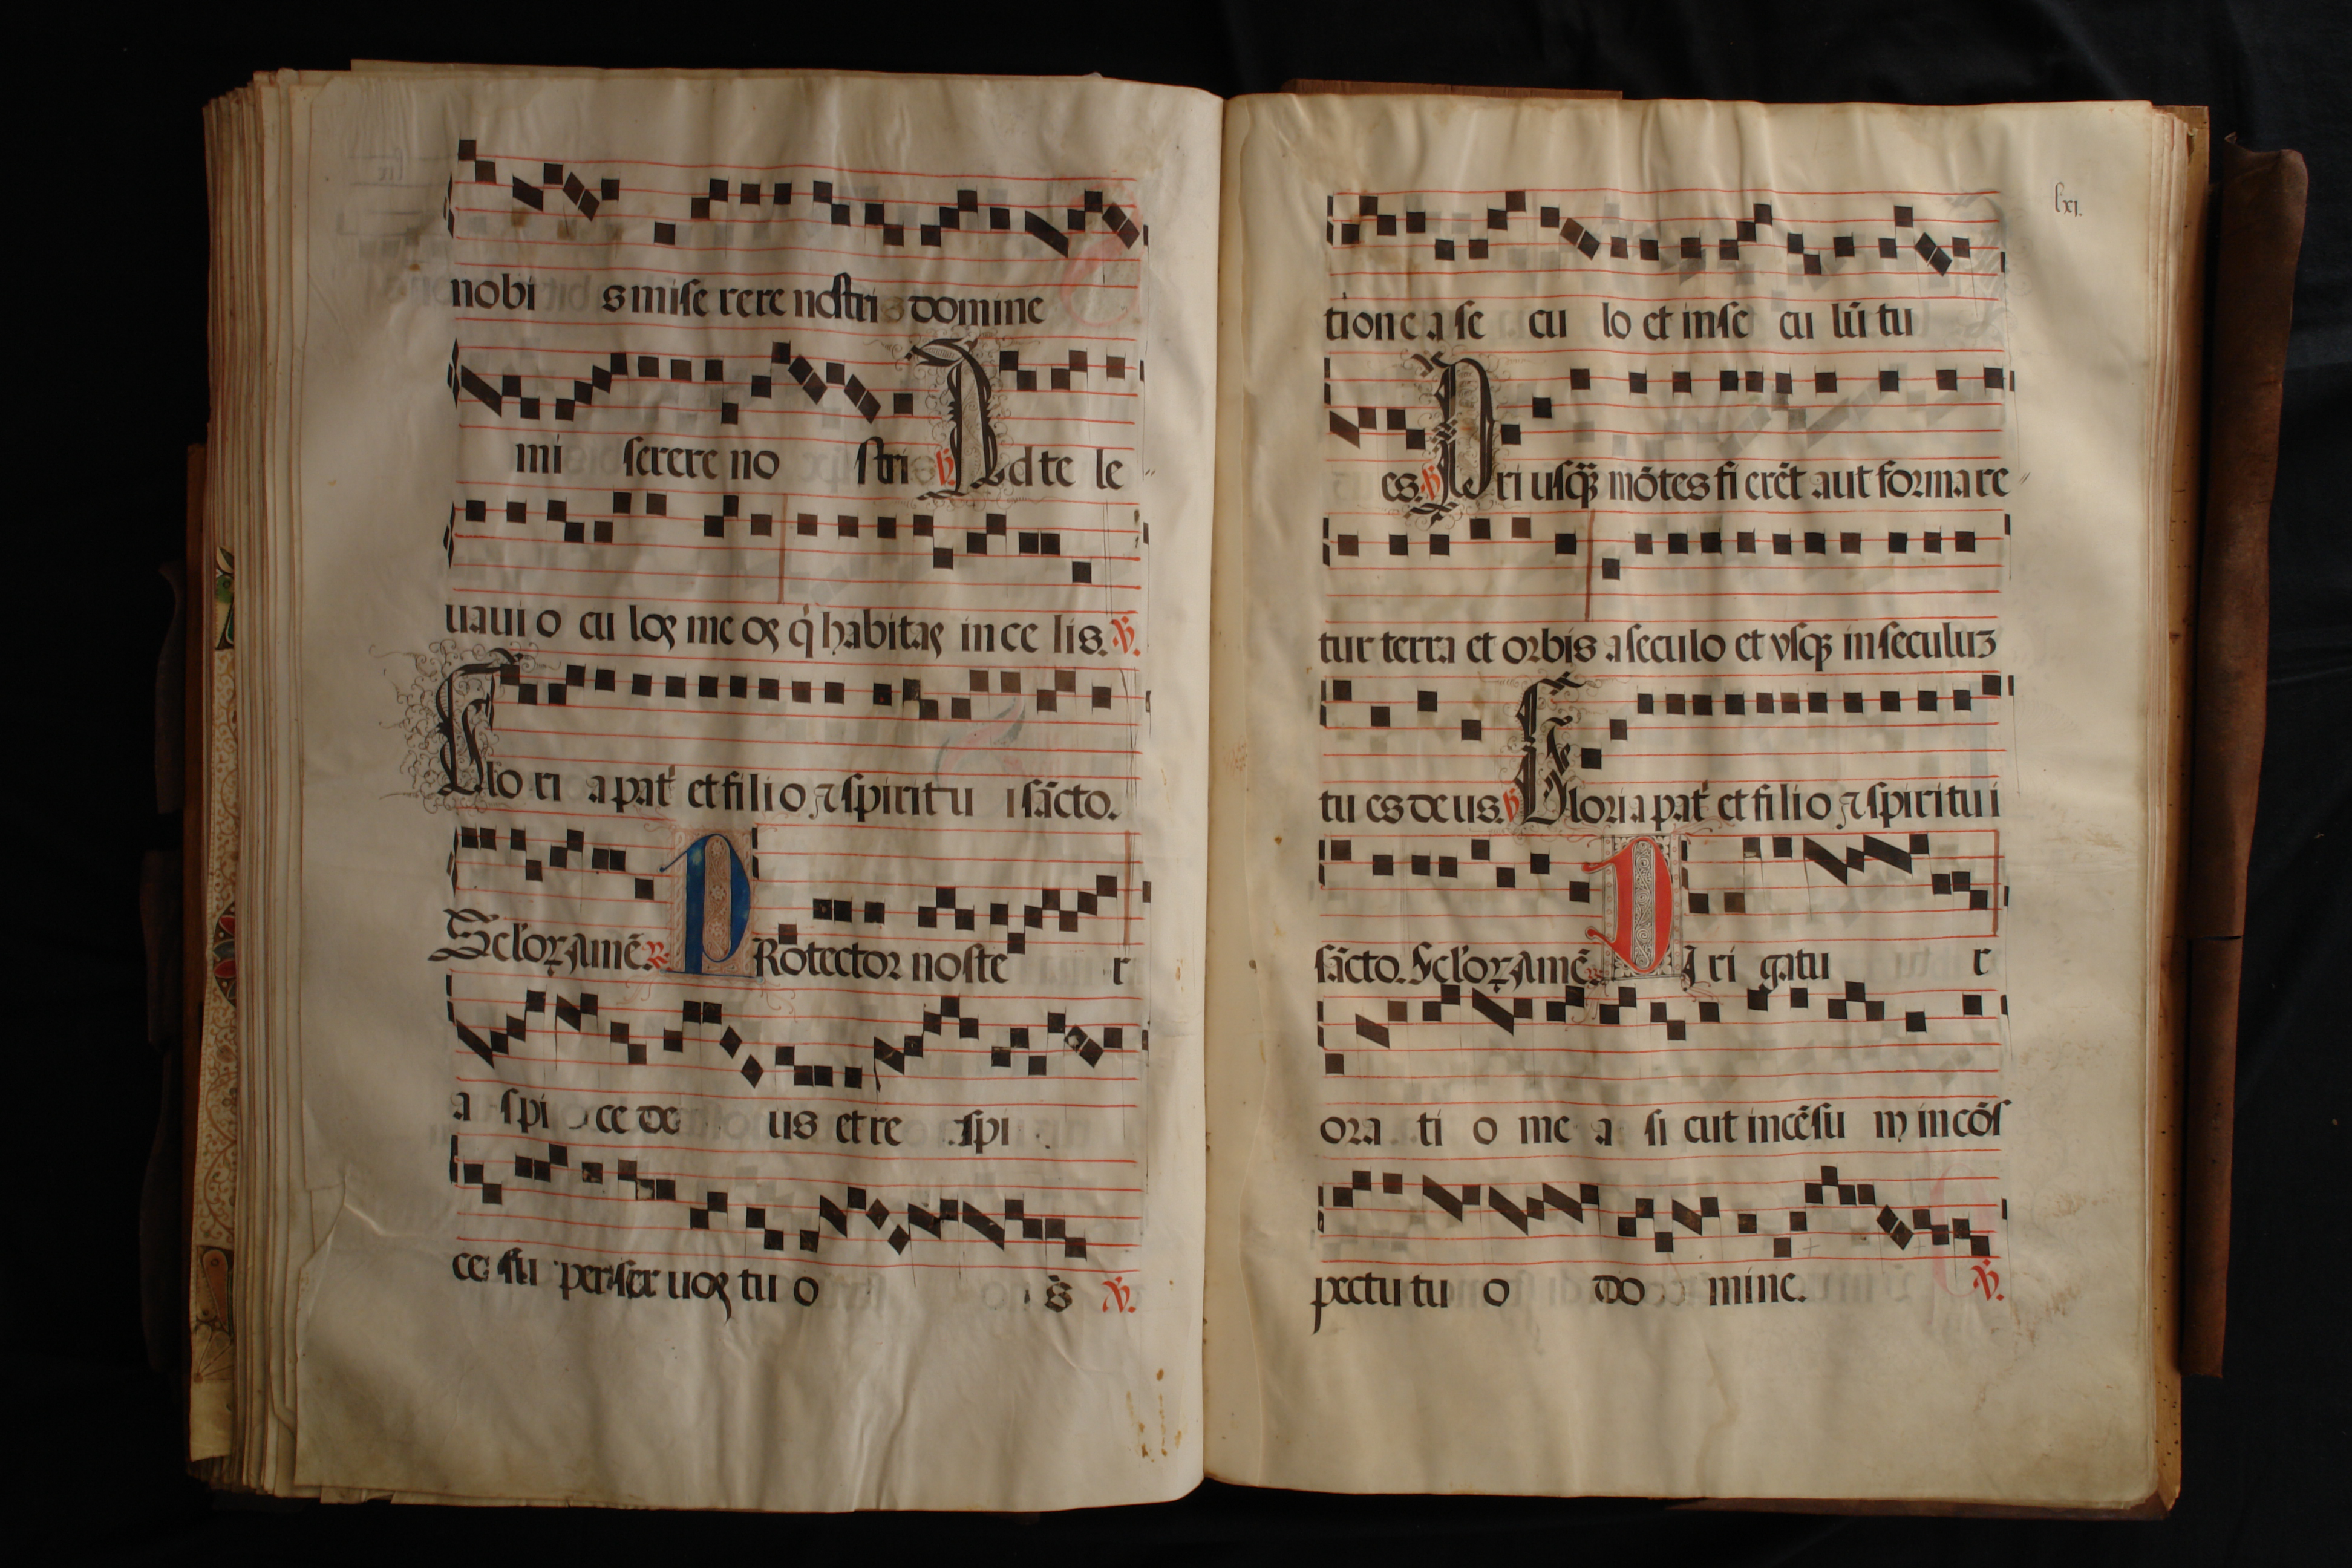 nobi s mise rere nostri domine
mi serere no stri ℣ Ad te le
uaui o cu loꝫ me oꝫ q̇ habitaꝫ in ce lis. ℣.
Glo ri a pat̉ et fili o ⁊ spiritu i sācto.
Sclꝛoꝝ Amē. ℟ PRotector noste r
a spi ce de us et re spi
ce su per ser uoꝫ tu o s̄ ℣.
lxj.
tione a se cu lo et in se cu lū tu
es. ℣ Pri usqꝫ mōtes fi erēt aut formare
tur terra et orbis a seculo et vsqꝫ in seculuꝫ
tu es deus. ℣ Gloria pat̉ et filio ⁊ spiritui
sācto. Sclꝛoꝝ Amē. ℟ DI ri gatu r
ora ti o me a si cut incēsu m in cōs
pectu tu o do mine. ℣.